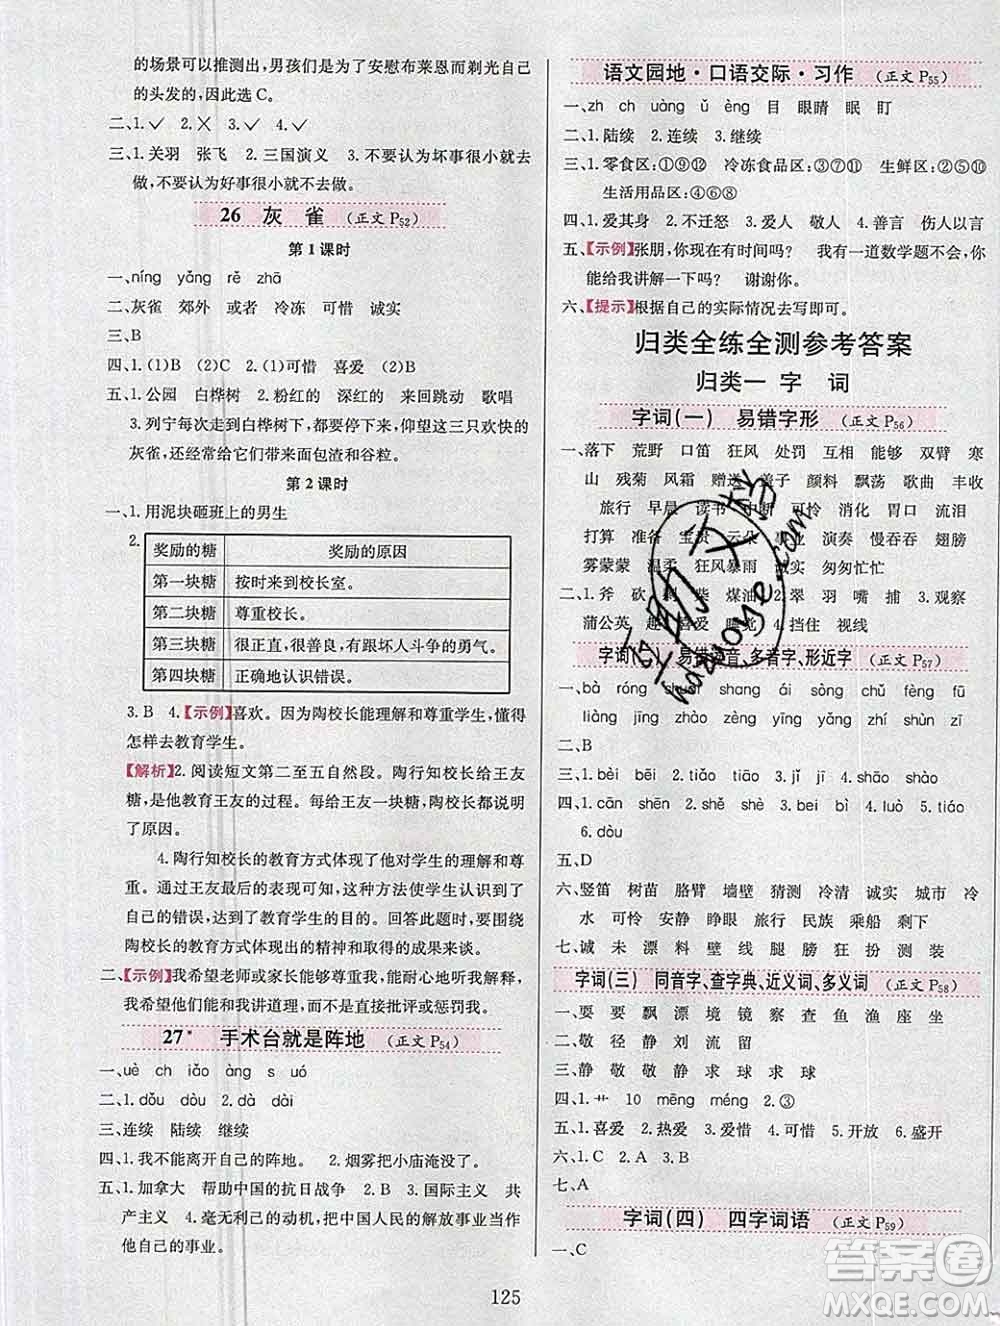 的场景可以推测出,男孩们是为了安慰布莱恩而剃光自己
的头发的,因此选C。
二、1.✓ 2.✗ 3.✓ 4.✓
三、1.关羽 张飞 2.三国演义 3.不要认为坏事很小就去
做,不要认为好事很小就不去做。
26 灰雀 (正文P52)
第1课时
一、níng yǎng rě zhā
二、灰雀 郊外 或者 冷冻 可惜 诚实
三、B
四、1.(1)B (2)C 2.(1)可惜 喜爱 (2)可爱
五、1.公园 白桦树 2.粉红的 深红的 来回跳动 歌唱
3.列宁每次走到白桦树下,都仰望这三只欢快的
灰雀,还经常给它们带来面包渣和谷粒。
第2课时
一、1.用泥块砸班上的男生
2.
奖励的糖 奖励的原因
第一块糖 按时来到校长室。
第二块糖 尊重校长。
第三块糖 很正直,很善良,有跟坏人斗争的勇气。
第四块糖 正确地认识错误。
3.B 4.【示例】喜欢。因为陶校长能理解和尊重学生,懂得
怎样去教育学生。
【解析】2.阅读短文第二至五自然段。陶行知校长给王友
糖,是他教育王友的过程。每给王友一块糖,都说明了
了原因。
4.陶行知校长的教育方式体现了他对学生的理解和尊
重。通过王友最后的表现可知,这种方法使学生认识到了
自己的错误,达到了教育学生的目的。回答此题时,要围绕
陶校长的教育方式体现出的精神和取得的成果来谈。
二、【示例】我希望老师或家长能够尊重我,能耐心地听我解释,
我希望他们能和我讲道理,而不是直接批评或惩罚我。
27* 手术台就是阵地 (正文P54)
一、uè ch iǎo àng s uó
二、1.dǒu dòu 2.dà dài
三、连续 陆续 继续
四、1.我不能离开自己的阵地。 2.烟雾把小庙淹没了。
五、1.加拿大 帮助中国的抗日战争 2.B 3.国际主义 共
产主义 4.毫无利己的动机,把中国人民的解放事业当作
他自己的事业。
语文园地·口语交际·习作 (正文P55)
一、zh ch uàng ǔ èng 目 眼睛 眠 盯
二、1.陆续 2.连续 3.继续
三、1.零食区:①⑨⑫ 冷冻食品区:③⑦⑪ 生鲜区:②⑤⑩
生活用品区:④⑥⑧
四、1.爱其身 2.不迁怒 3.爱人 敬人 4.善言 伤人以言
五、【示例】张朋,你现在有时间吗? 我有一道数学题不会,你
能给我讲解一下吗? 谢谢你。
六、【提示】根据自己的实际情况去写即可。
归类全练全测参考答案
归类一 字 词
字词(一) 易错字形 (正文P56)
一、落下 荒野 口笛 狂风 处罚 互相 能够 双臂 寒
山 残菊 风霜 赠送 盖子 颜料 飘荡 歌曲 丰收
旅行 早晨 读书 中断 可怜 消化 胃口 流泪
打算 准备 宝贵 云朵 事业 演奏 慢吞吞 翅膀
雾蒙蒙 温柔 狂风暴雨 诚实 匆匆忙忙
二、1.斧 砍 剩 柴 煤油 2.翠 羽 嘴 捕 3.观察
蒲公英 趣 喜爱 睡觉 4.挡住 视线
易错读音、多音字、形近字 (正文P57)
shang ái sòng chǔ fèng fū
liàng jīng zhào zèng yīng zhí shùn zī
二、B
三、1.bèi bēi 2.tiǎo tiāo 3.jǐ jī 4.shāo shào
四、1.cān shēn 2.shě shè 3.bei bì 4.luò 5.tiáo
6.dòu
五、D
六、竖笛 树苗 胳臂 墙壁 猜测 冷清 诚实 城市 冷
水 可怜 安静 睁眼 旅行 民族 乘船 剩下
七、诚 未 漂 料 壁 线 腿 膀 狂 扮 测 装
字词(三) 同音字、查字典、近义词、多义词 (正文P58)
一、耍 要 飘 漂 境 镜 察 查 鱼 渔 座 坐
二、敬 径 静 劲
三、静 敬 劲 静 求 球 求 球
四、1.艹 10 mēng méng 2.③
五、1.喜爱 2.热爱 3.爱惜 4.可惜 5.开放 6.盛开
六、1.C 2.A 3.B
七、A
字词(四) 四字词语 (正文P59)
一、C
125
答案圈
MXQE.COM